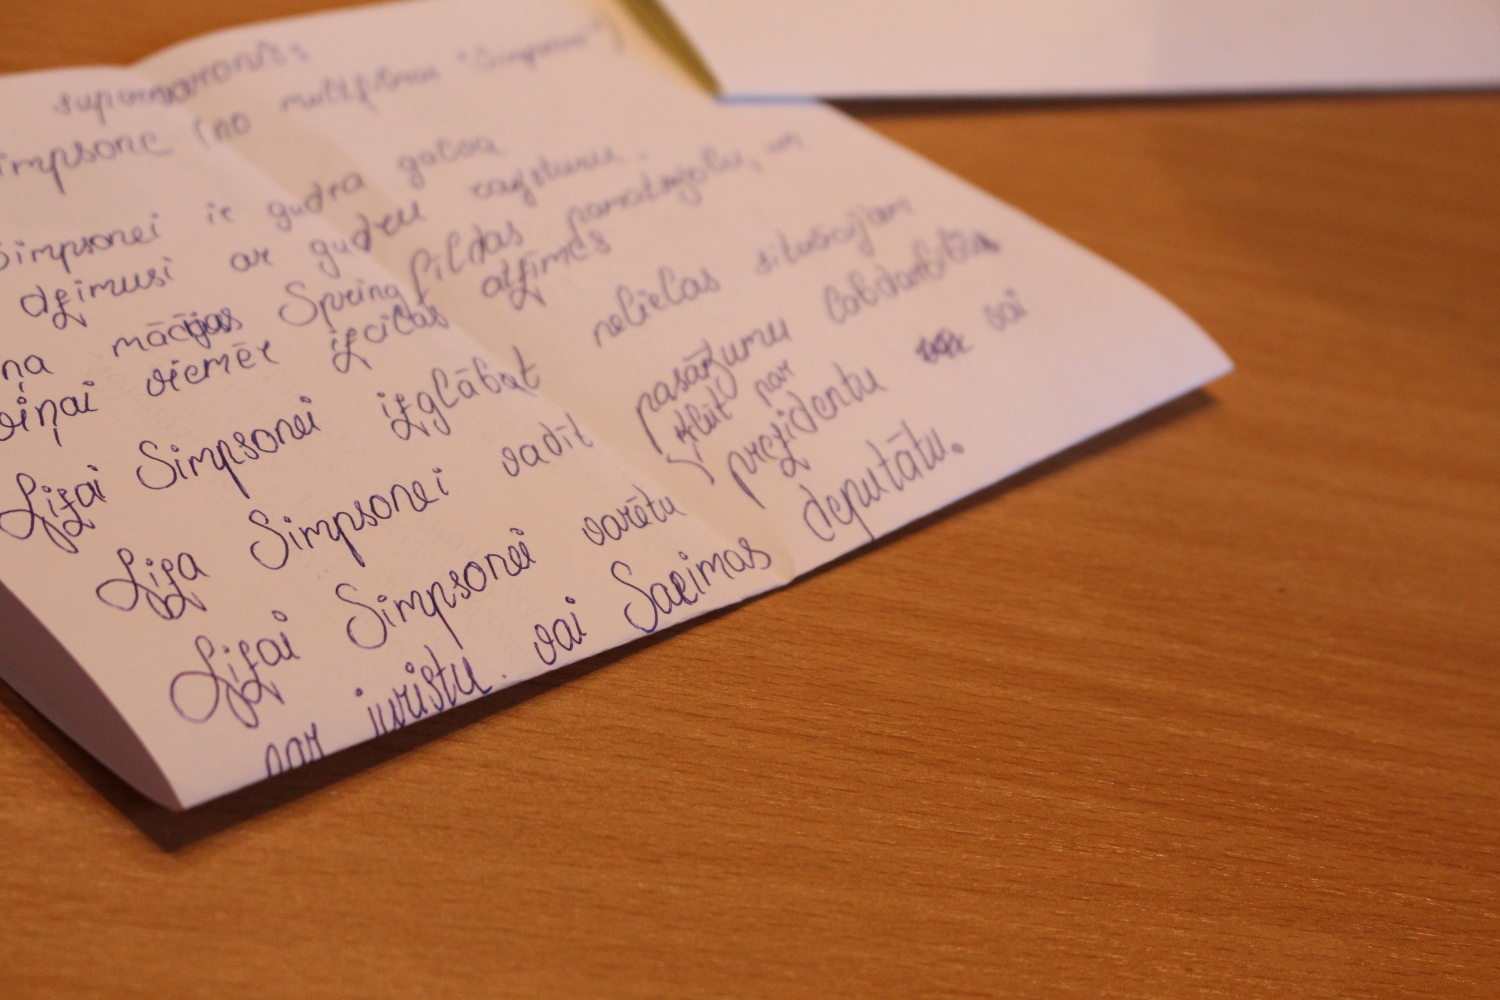 supervaronis
Simpsone (no multfilmas "Simpsoni")
Simpsonei ir gudra galva
dzimusi ar gudru raksturu.
mācījas Springfildas pamatskolu, un
viņai vienmēr izcilas atzīmes
Lizai Simpsonei izglābat nelielas situācijām
Liza Simpsonei vadīt pasāžumu labdarbības
Lizai Simpsonei varētu kļūt par prezidentu vai
par juristu vai Saeimas deputātu.